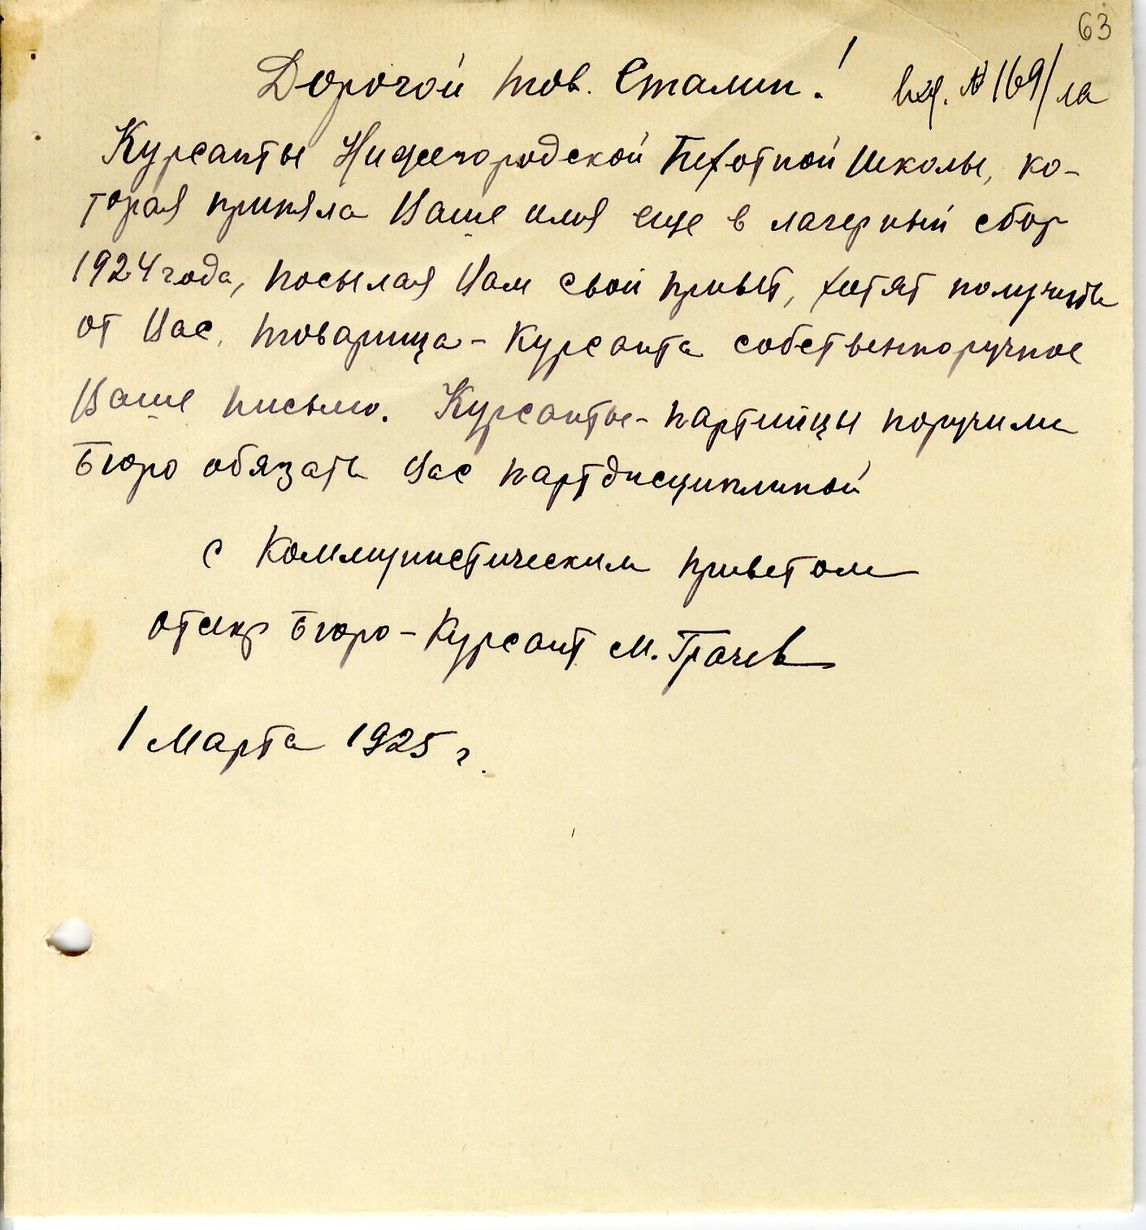 63
Дорогой тов. Сталин! вх. № 169/
Курсанты Нижегородской Пехотной Школы, ко-
торая приняла Ваше имя еще в лагерный сбор
1924 года, посылая Вам свой привет, хотят получить
от Вас, товарища-курсанта собственноручное
Ваше письмо. Курсанты-партийцы поручили
Бюро обязать Вас партдисциплиной
с коммунистическим приветом
отсекр Бюро-Курсант М. Грачев
1 марта 1925 г.